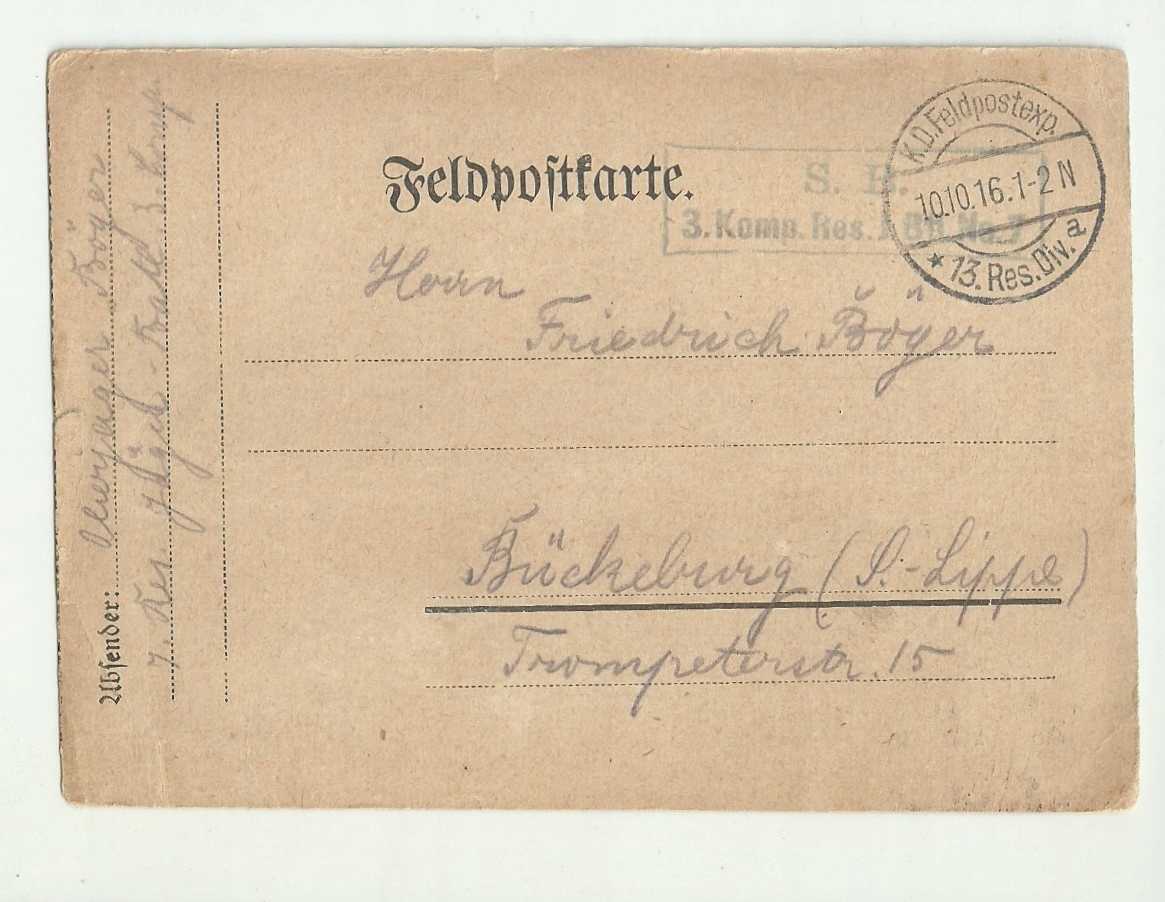 Feldpostkarte.
K.D. Feldpostexp.
10.10.16.1-2 N
* 13. Res. Div. a
S. B.
3. Komp. Res. J. Btl. No. 7
Herrn
Friedrich Böger
Bückeburg (S.-Lippe)
Trompeterstr. 15
Absender: Oberjäger Böger
7. Res. Jäger-Batl 3. Komp